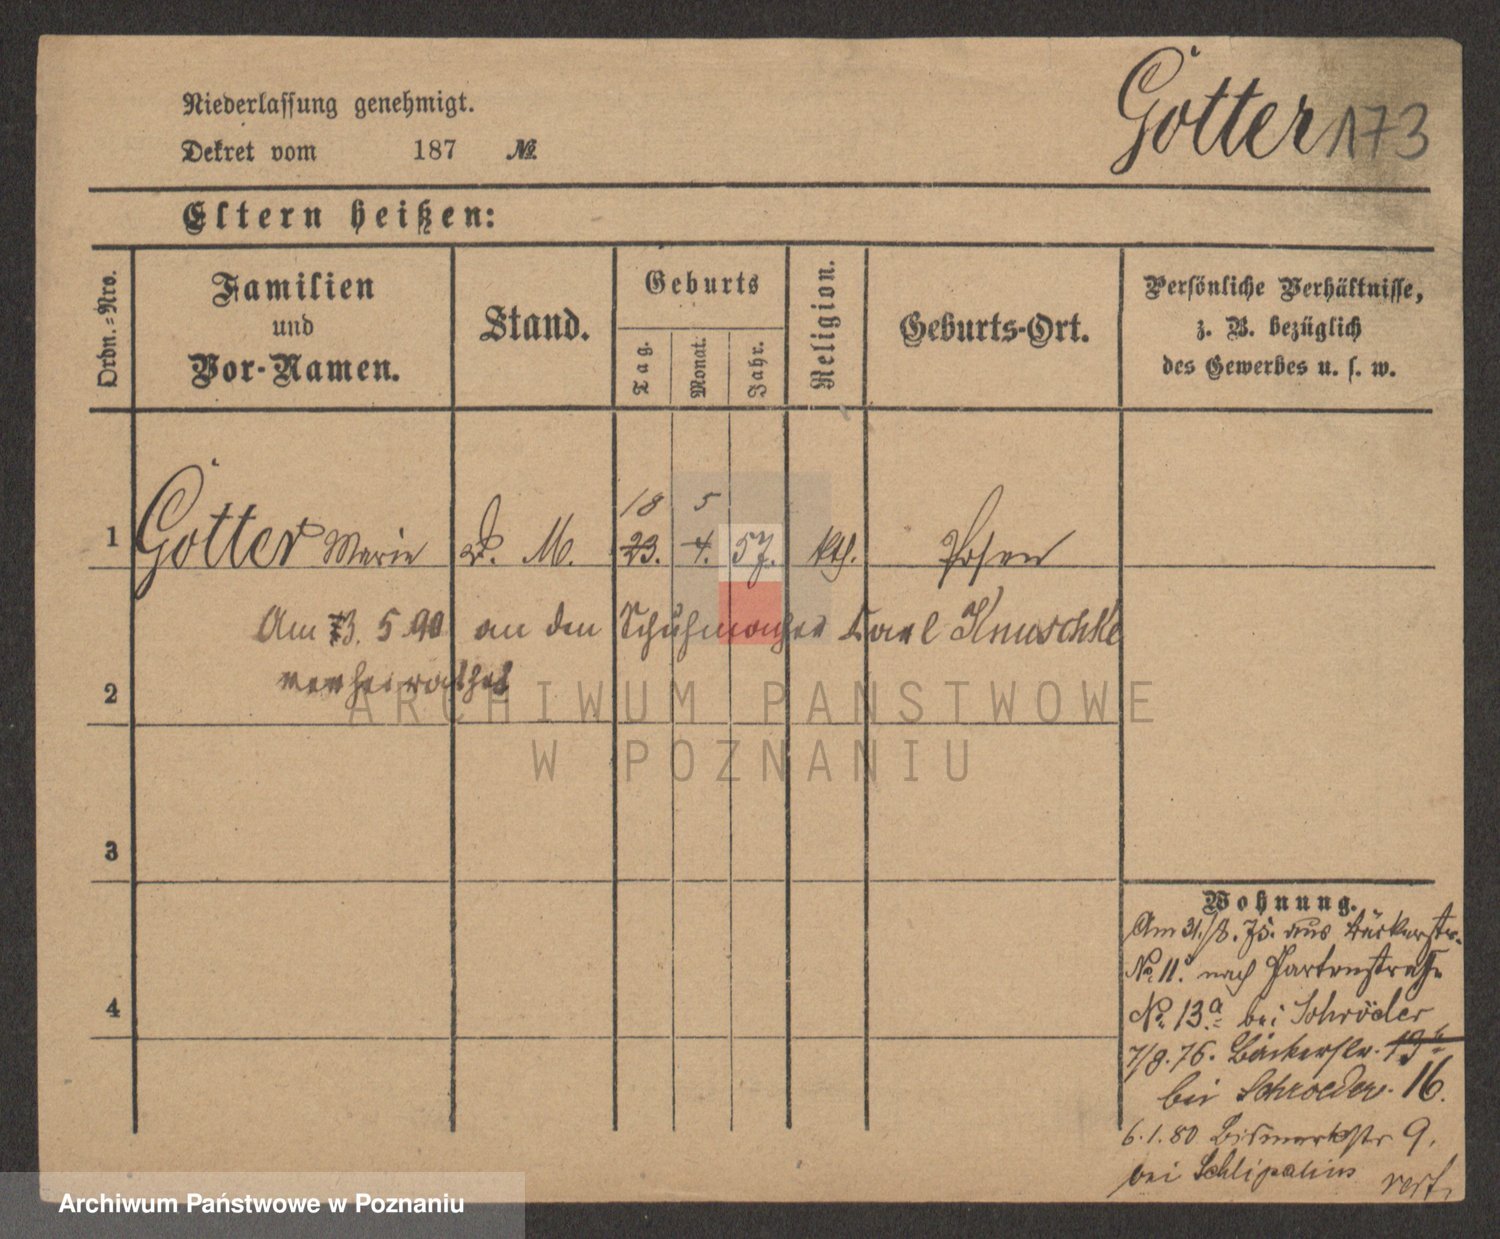 Niederlassung genehmigt.
Dekret vom 187 №
Gotter 173
Eltern heißen:
Ordn.=Nro.
Familien
und
Vor-Namen.
Stand.
Geburts
Tag.
Monat.
Jahr.
Religion.
Geburts-Ort.
Persönliche Verhältnisse,
z. B. bezüglich
des Gewerbes u. s. w.
18 5
1 Gotter Marie D. M. 23. 4. 57. kth. Posen
Am 13. 5 90 an den Schuhmacher Karl Knuschke
2 verheirathet
ARCHIWUM PAŃSTWOWE
W POZNANIU
3
Wohnung.
Am 31./8. 75. aus Bäckerstr.
No 11. nach Gartenstraße
4 No 13.a bei Schröder
7/9. 76. Bäckerstr. 13b
bei Schroeder. 16.
6.1.80 Bismarckstr 9.
bei Schlipalius
Archiwum Państwowe w Poznaniu